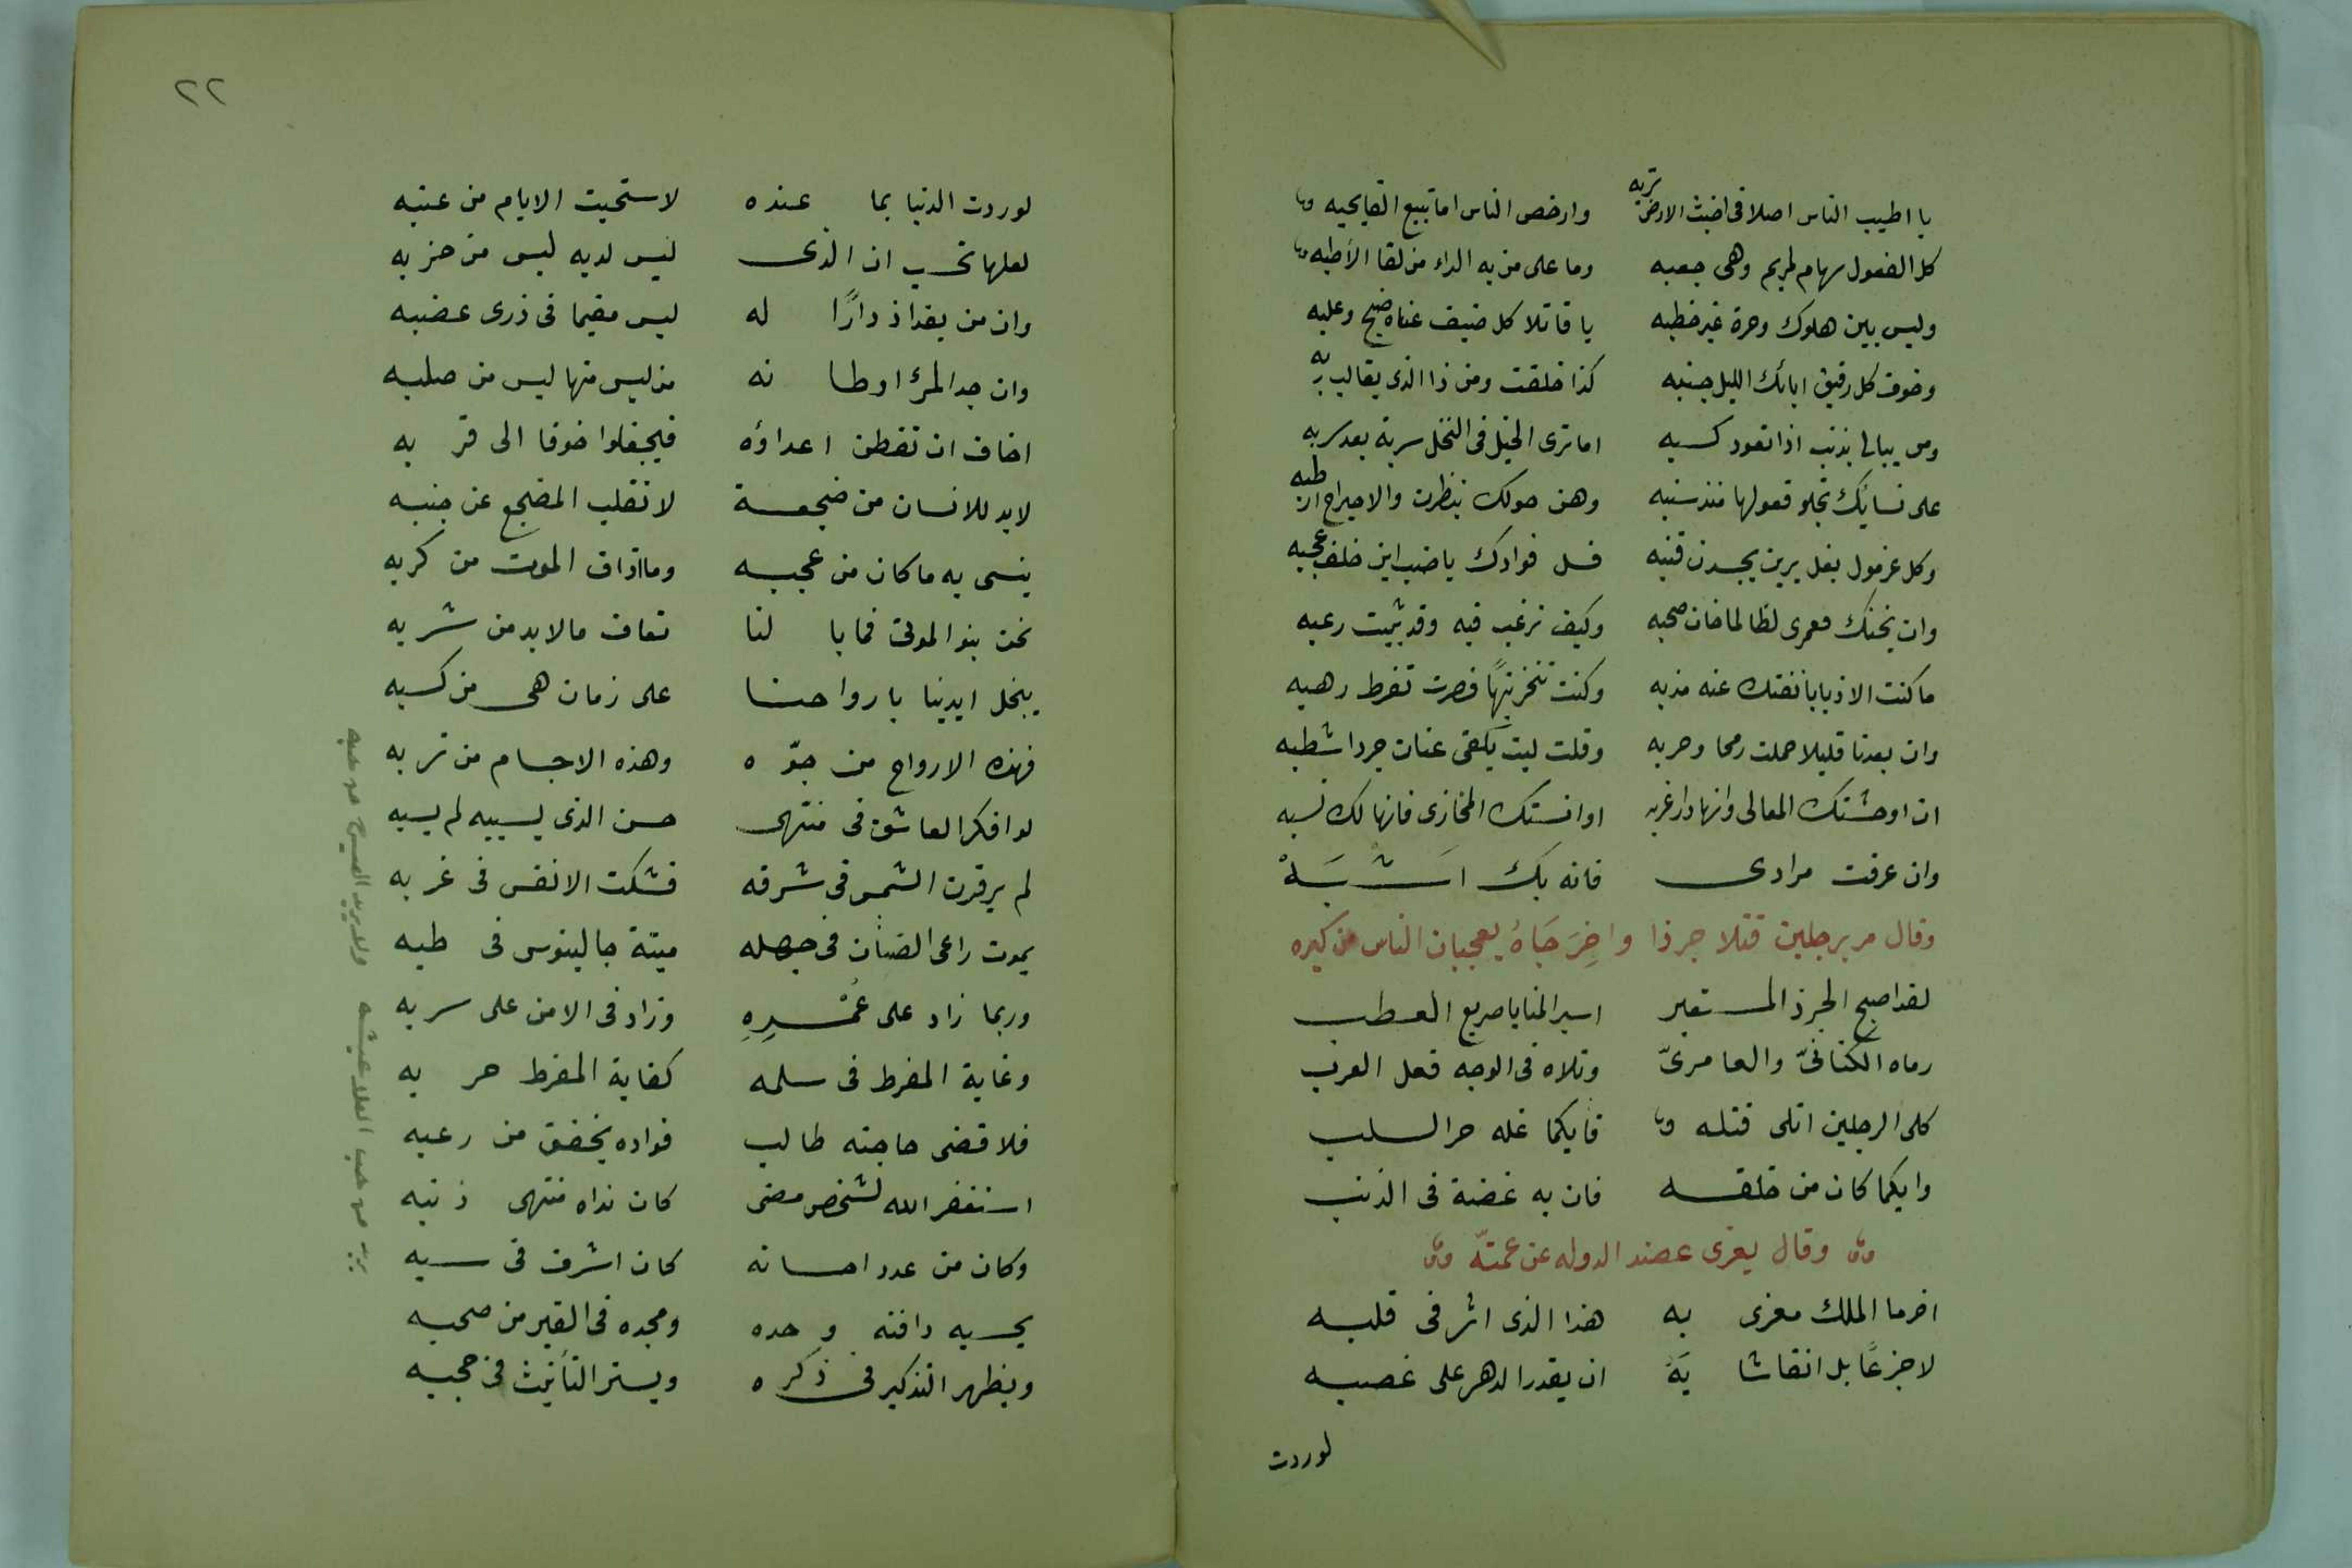 تربه
يا اطيب الناس اصلا فى اخبث الارض وارخص الناس اما تبيع القابحبه
كل الفعول سهام لمريم وهى جعبه وما على من به الداء من لقا الاطبه
وليس بين هلوك وحرة غير خطبه يا قاتلا كل ضيف غناه ضيح وعلبه
وخوف كل رفيق اباتك الليل جنبه كذا خلقت ومن ذا الذى يغالب ربه
ومن يبالى بذنب اذا تعود كسبه اما ترى الخيل فى النخل سربة بعد سربه
على نسايك تجلو فعولها منذ سنبه وهن حولك ينظرن والاحيراح ارطبه
وكل غرمول بغل يرين يحسدن قنبه فسل فوادك يا ضب اين خلف عجبه
وان يخنك فعمرى لظالما خان صحبه وكيف ترغب فيه وقد تبيت رعبه
ما كنت الا ذبابا نفتك عنه مذبه وكنت تنخر تيهًا فصرت تضرط رهبه
وان بعدنا قليلا حملت رمحا وحربه وقلت ليت بكفى عنان جردا شطبه
ان اوحشتك المعالى فانها دار غربه او انستك المخازى فانها لك نسبه
وان عرفت مرادى فانه بك اشبَهْ
وقال مر برجلين قتلا جرذا واخِرَجَاهُ يعجبان الناس من كبره
لقد اصبح الجرذ المستغير اسير المنايا صريع العطب
رماه الكنانىّ والعامرىّ وتلاه فى الوجه فعل العرب
كلى الرجلين اتلى قتله فايكما غله حر السلب
وايكما كان من خلفه فان به عضة فى الذنب
وقال يعزى عضد الدوله عن عمته
اخر ما الملك معزى به هذا الذى اثر فى قلبه
لا جزعًا بل انفا شابَهُ ان يقدر الدهر على غصبه
لو ردت
٢٢
لو ردت الدنيا بما عنده لاستحيت الايام من عتبه
لعلها تحسب ان الذى ليس لديه ليس من حزبه
وان من بغداذ دارًا له ليس مقيما فى ذرى عضبه
وان جد المرٔ اوطانه من ليس منها ليس من صلبه
اخاف ان تفطن اعداؤه فيجفلوا خوفا الى قربه
لابد للانسان من ضجعة لا تقلب المضجع عن جنبه
ينسى به ما كان من عجبه وما اذاق الموت من كربه
نحن بنو الموتى فما بالنا نعاف ما لابد من شربه
يبخل ايدينا بارواحنا على زمان هى من كسبه
فهذه الارواح من جوّه وهذه الاجسام من تربه
لو افكر العاشق فى منتهى حسن الذى يسبيه لم يسبه
لم ير قرن الشمس فى شرقه فشكت الانفس فى غربه
يموت راعى الضئان فى جهله ميتة جالينوس فى طبه
وربما زاد على عُمْرِهِ وزاد فى الامن على سربه
وغاية المفرط فى سلمه كغاية المفرط حربه
فلا قضى حاجته طالب فواده يخفق من رعبه
استغفر الله لشخص مضى كان نداه منتهى ذنبه
وكان من عدد احسانه كان اشرف فى سبه
يحسبه دافنه وحده ومجده فى القبر من صحبه
ويظهر التذكير فى ذكره ويستر التأنيث فى حجبه
يريد من حب العلا عيشه ولا يريد العيش من حبه